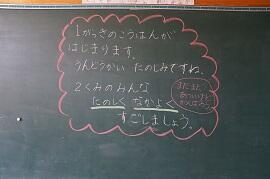 1がっきのこうはんが
はじまります。
うんどうかい たのしみですね。
2くみのみんな
たのしく なかよく
すごしましょう。
まだまだ